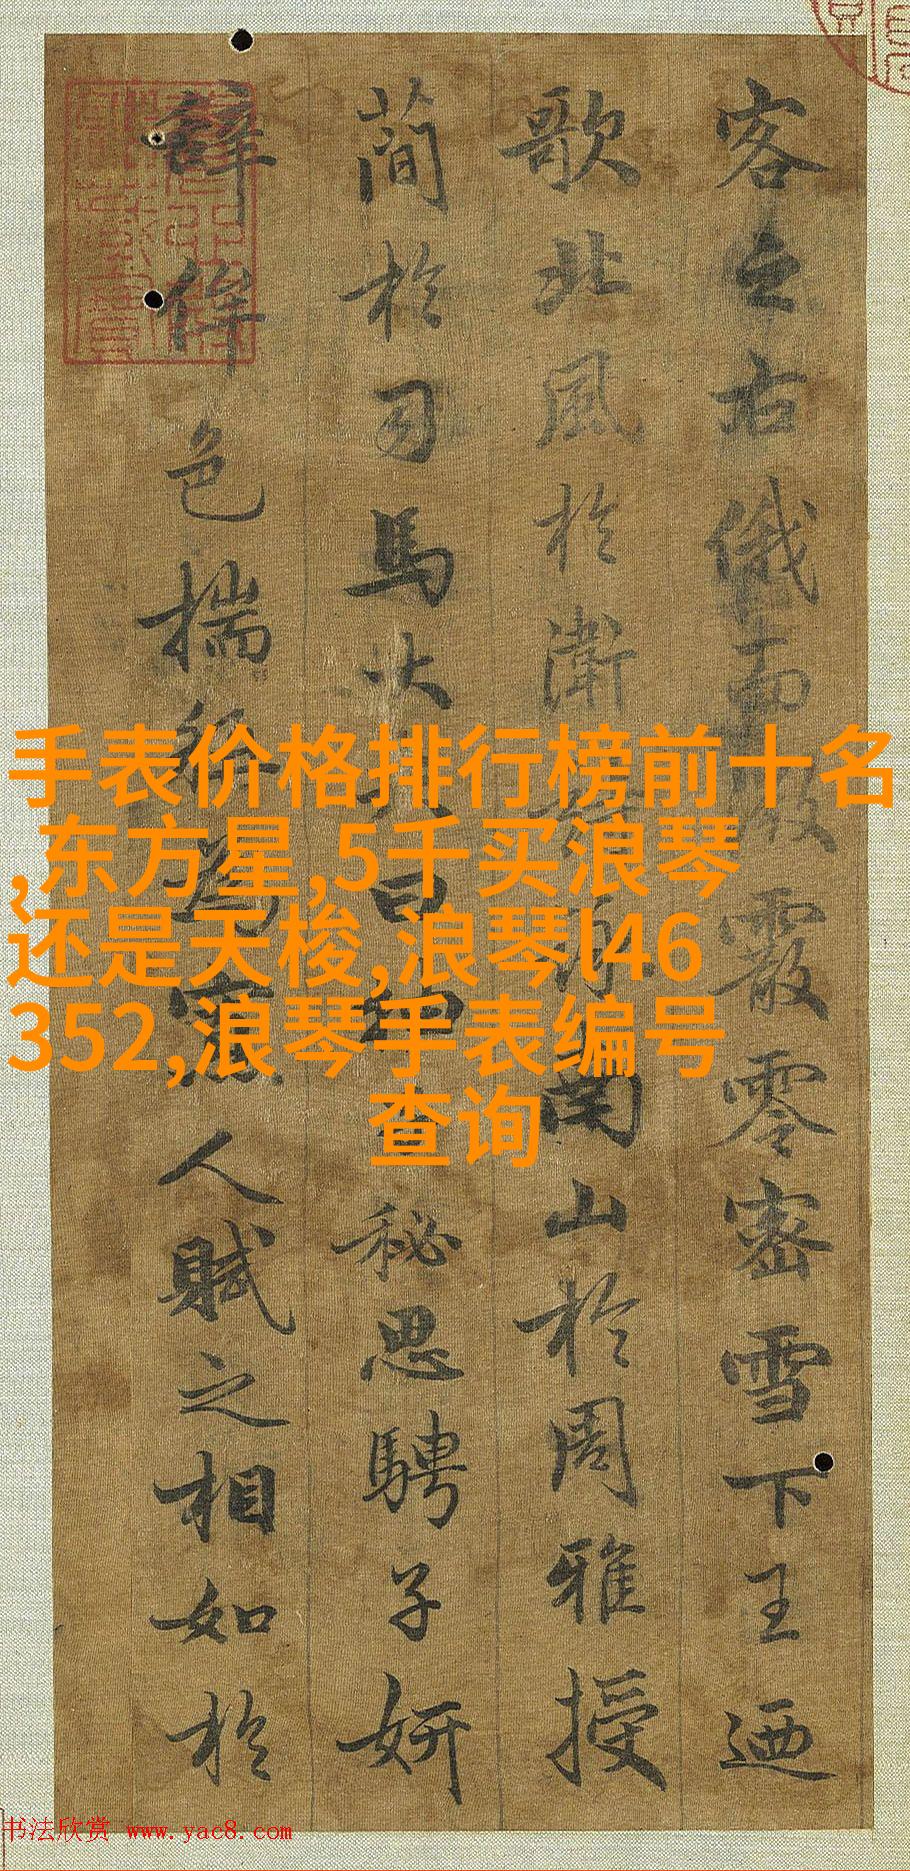 客之右俄而霰零密雪下王迺
歌北風於衛南山於周雅授
簡於司馬大曰秘思騁子妍
辭侔色揣稱為寡人賦之相如於
手表价格排行榜前十名
,东方星,5千买浪琴
还是天梭,浪琴l46
352,浪琴手表编号
查询
书法欣赏 www.yac8.com